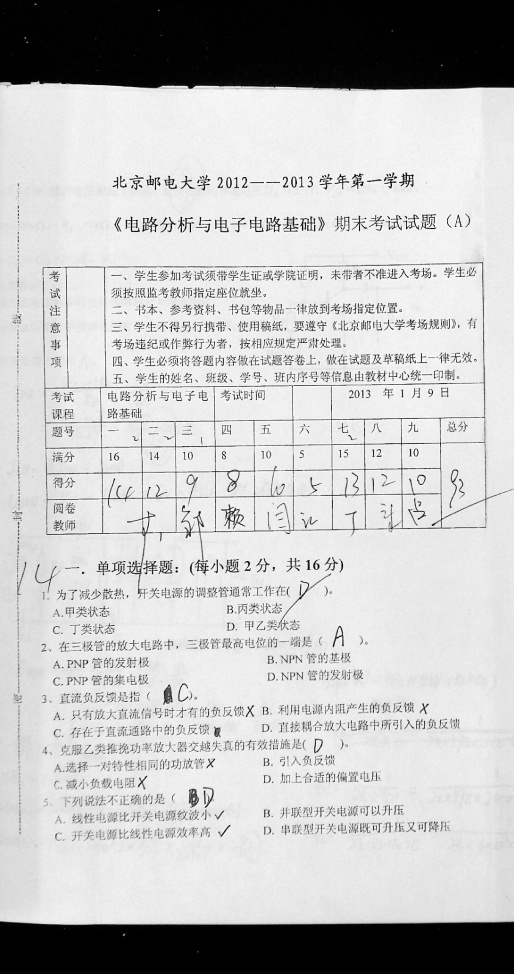 北京邮电大学 2012——2013 学年第一学期
《电路分析与电子电路基础》期末考试试题（A）
考试注意事项
一、学生参加考试须带学生证或学院证明，未带者不准进入考场。学生必
须按照监考教师指定座位就坐。
二、书本、参考资料、书包等物品一律放到考场指定位置。
三、学生不得另行携带、使用稿纸，要遵守《北京邮电大学考场规则》，有
考场违纪或作弊行为者，按相应规定严肃处理。
四、学生必须将答题内容做在试题答卷上，做在试题及草稿纸上一律无效。
五、学生的姓名、班级、学号、班内序号等信息由教材中心统一印制。
考试课程 电路分析与电子电路基础 考试时间 2013 年 1 月 9 日
题号 一 二 三 四 五 六 七 八 九 总分
满分 16 14 10 8 10 5 15 12 10
得分 14 12 9 8 10 5 13 12 10 93
阅卷教师
14 一．单项选择题：(每小题 2 分，共 16 分)
1. 为了减少散热，开关电源的调整管通常工作在( D )。
A.甲类状态 B.丙类状态
C. 丁类状态 D. 甲乙类状态
2、在三极管的放大电路中，三极管最高电位的一端是（ A ）。
A. PNP 管的发射极 B. NPN 管的基极
C. PNP 管的集电极 D. NPN 管的发射极
3、直流负反馈是指（ C）。
A. 只有放大直流信号时才有的负反馈X B. 利用电源内阻产生的负反馈 X
C. 存在于直流通路中的负反馈 D. 直接耦合放大电路中所引入的负反馈
4、克服乙类推挽功率放大器交越失真的有效措施是( D )。
A.选择一对特性相同的功放管X B. 引入负反馈
C. 减小负载电阻X D. 加上合适的偏置电压
5、下列说法不正确的是（ D ）
A. 线性电源比开关电源纹波小✓ B. 并联型开关电源可以升压
C. 开关电源比线性电源效率高 ✓ D. 串联型开关电源既可升压又可降压